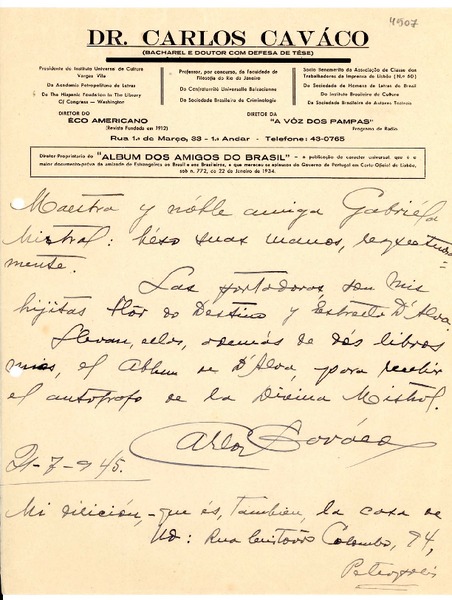 4907
DR. CARLOS CAVÁCO
(BACHAREL E DOUTOR COM DEFESA DE TÉSE)
Presidente do Instituto Universo de Cultura
Vargas Vila
Da Academia Petropolitana de Letras
Da The Hispanic Foundation In The Library
Of Congress — Washington
Professor, por concurso, da Faculdade de
Filosofia do Rio de Janeiro
Da Confraternité Universelle Balzcienne
Da Sociedade Brasileira de Criminologia
Socio Benemerito da Associação de Classe dos
Trabalhadores da Imprensa de Lisbôa (N.º 80)
Da Sociedade de Homens de Letras do Brasil
Do Instituto Brasileiro de Cultura
Da Sociedade Brasileira de Autores Teatrais
DIRETOR DO
ÉCO AMERICANO
(Revista Fundada em 1912)
DIRETOR DA
"A VÓZ DOS PAMPAS"
Programa de Radio
Rua 1.º de Março, 33 - 1.º Andar - Telefone: 43-0765
Diretor Proprietario do "ALBUM DOS AMIGOS DO BRASIL" — a publicação de caracter universal, que é o
maior documento-prova da amizade de Estrangeiros ao Brasil e aos Brasileiros, e que mereceu os aplausos do Governo de Portugal em Carta Oficial de Lisbôa,
sob n. 772, de 22 de Janeiro de 1934.
Maestra y noble amiga Gabriéla
Mistral: béso suas manos, respectuosa
mente.
Las portadoras son mis
hijitas Flôr do Destino y Estrela D'Alva.
Llevan, elas, además de dós libros
mios, el Album de D'Alva, para recebir
el autógrafo de la Divina Mistral.
Carlos Caváco
21-7-945.
Mi dirición, - que és, tambien, la casa de
Ud: Rua Cristóvão Colombo, 94,
Petropolis